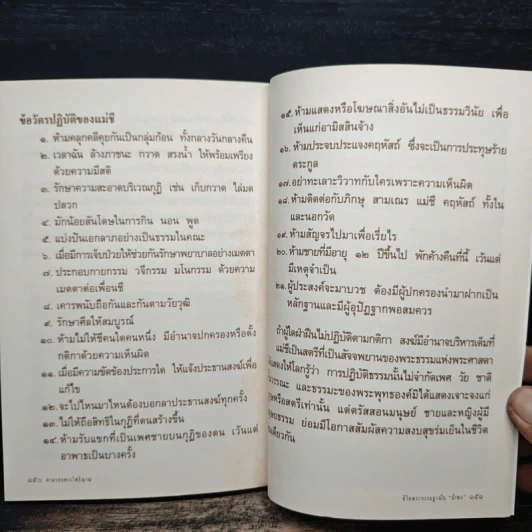 ข้อวัตรปฏิบัติของแม่ชี
๑. ห้ามคลุกคลีคุยกันเป็นกลุ่มก้อน ทั้งกลางวันกลางคืน
๒. เวลาฉัน ล้างภาชนะ กวาด สรงน้ำ ให้พร้อมเพรียง
ด้วยความมีสติ
๓. รักษาความสะอาดบริเวณกุฏิ เช่น เก็บกวาด ไล่มด
ปลวก
๔. มักน้อยสันโดษในการกิน นอน พูด
๕. แบ่งปันเอกลาภอย่างเป็นธรรมในคณะ
๖. เมื่อมีการเจ็บป่วยให้ช่วยกันรักษาพยาบาลอย่างเมตตา
๗. ประกอบกายกรรม วจีกรรม มโนกรรม ด้วยความ
เมตตาต่อเพื่อนชี
๘. เคารพนับถือกันและกันตามวัยวุฒิ
๙. รักษาศีลให้สมบูรณ์
๑๐. ห้ามไม่ให้ชีคนใดคนหนึ่ง มีอำนาจปกครองหรือตั้ง
กติกาด้วยความเห็นผิด
๑๑. เมื่อมีความขัดข้องประการใด ให้แจ้งประธานสงฆ์เพื่อ
แก้ไข
๑๒. จะไปไหนมาไหนต้องบอกลาประธานสงฆ์ทุกครั้ง
๑๓. ไม่ให้ถือสิทธิในกุฏิที่ตนสร้างขึ้น
๑๔. ห้ามรับแขกที่เป็นเพศชายบนกุฏิของตน เว้นแต่
อาพาธเป็นบางครั้ง
๑๕. ห้ามแสดงหรือโฆษณาสิ่งอันไม่เป็นธรรมวินัย เพื่อ
เห็นแก่อามิสสินจ้าง
๑๖. ห้ามประจบประแจงคฤหัสถ์ ซึ่งจะเป็นการประทุษร้าย
ตระกูล
๑๗. อย่าทะเลาะวิวาทกับใครเพราะความเห็นผิด
๑๘. ห้ามติดต่อกับภิกษุ สามเณร แม่ชี คฤหัสถ์ ทั้งใน
และนอกวัด
๑๙. ห้ามสัญจรไปมาเพื่อเรี่ยไร
๒๐. ห้ามชายที่มีอายุ ๑๒ ปีขึ้นไป พักค้างคืนที่นี้ เว้นแต่
มีเหตุจำเป็น
๒๑. ผู้ประสงค์จะมาบวช ต้องมีผู้ปกครองนำมาฝากเป็น
หลักฐานและมีผู้อุปัฏฐากพอสมควร
ถ้าผู้ใดฝ่าฝืนไม่ปฏิบัติตามกติกา สงฆ์มีอำนาจบริหารเต็มที่
แม่ชีเป็นสตรีที่เป็นสัจจพยานของพระธรรมแห่งพระศาสดา
แสดงให้โลกรู้ว่า การปฏิบัติธรรมนั้นไม่จำกัดเพศ วัย ชาติ
วรรณะ และธรรมะของพระพุทธองค์มิได้แสดงเจาะจงแก่
หรือสตรีเท่านั้น แต่ตรัสสอนมนุษย์ ชายและหญิงผู้มี
ธรรม ย่อมมีโอกาสสัมผัสความสงบสุขร่มเย็นในชีวิต
เดียวกัน